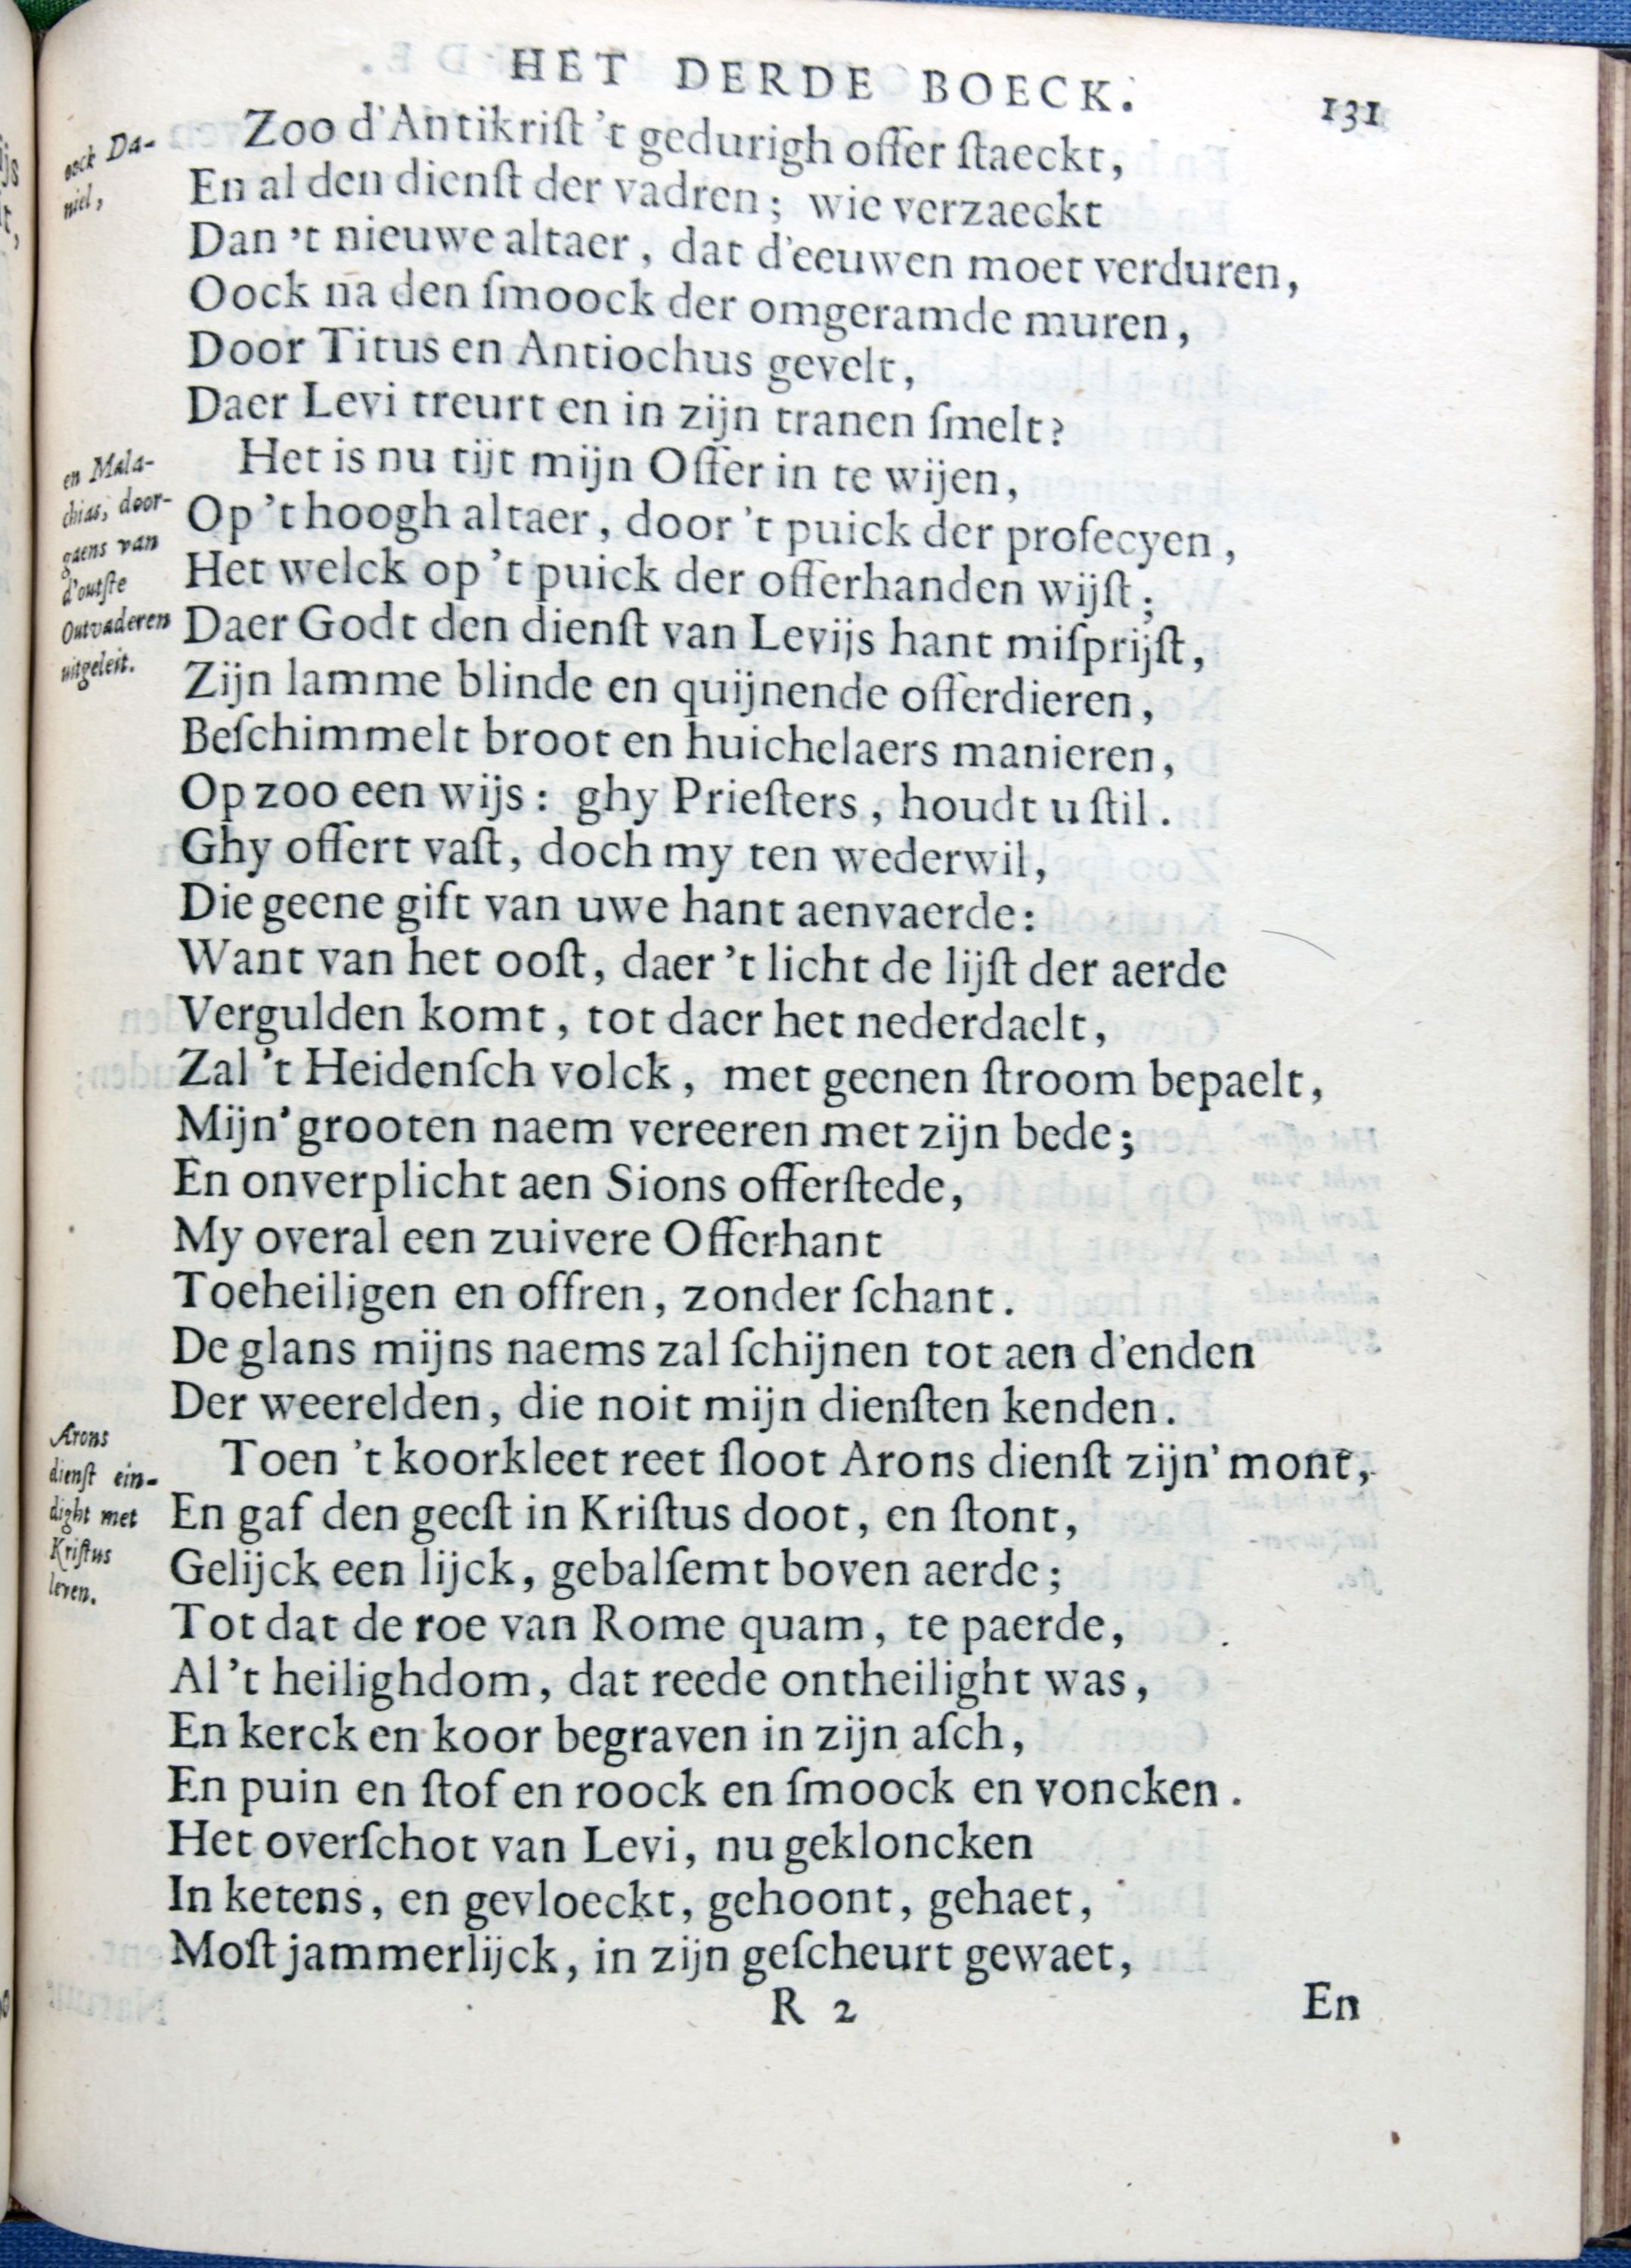 HET DERDE BOECK. 131
oock Da-
niel,
Zoo d'Antikriſt 't gedurigh offer ſtaeckt,
En al den dienſt der vadren; wie verzaeckt
Dan 't nieuwe altaer, dat d'eeuwen moet verduren,
Oock na den ſmoock der omgeramde muren,
Door Titus en Antiochus gevelt,
Daer Levi treurt en in zijn tranen ſmelt?
en Mala-
chias, door-
gaens van
d'outſte
Outvaderen
uitgeleit.
Het is nu tijt mijn Offer in te wijen,
Op 't hoogh altaer, door 't puick der profecyen,
Het welck op 't puick der offerhanden wijſt;
Daer Godt den dienſt van Levijs hant miſprijſt,
Zijn lamme blinde en quijnende offerdieren,
Beſchimmelt broot en huichelaers manieren,
Op zoo een wijs: ghy Prieſters, houdt u ſtil.
Ghy offert vaſt, doch my ten wederwil,
Die geene gift van uwe hant aenvaerde:
Want van het ooſt, daer 't licht de lijſt der aerde
Vergulden komt, tot daer het nederdaelt,
Zal 't Heidenſch volck, met geenen ſtroom bepaelt,
Mijn' grooten naem vereeren met zijn bede;
En onverplicht aen Sions offerſtede,
My overal een zuivere Offerhant
Toeheiligen en offren, zonder ſchant.
De glans mijns naems zal ſchijnen tot aen d'enden
Der weerelden, die noit mijn dienſten kenden.
Arons
dienſt ein-
dight met
Kriſtus
leven.
Toen 't koorkleet reet ſloot Arons dienſt zijn' mont,
En gaf den geeſt in Kriſtus doot, en ſtont,
Gelijck een lijck, gebalſemt boven aerde;
Tot dat de roe van Rome quam, te paerde,
Al 't heilighdom, dat reede ontheilight was,
En kerck en koor begraven in zijn aſch,
En puin en ſtof en roock en ſmoock en voncken.
Het overſchot van Levi, nu gekloncken
In ketens, en gevloeckt, gehoont, gehaet,
Moſt jammerlijck, in zijn geſcheurt gewaet,
R 2 En